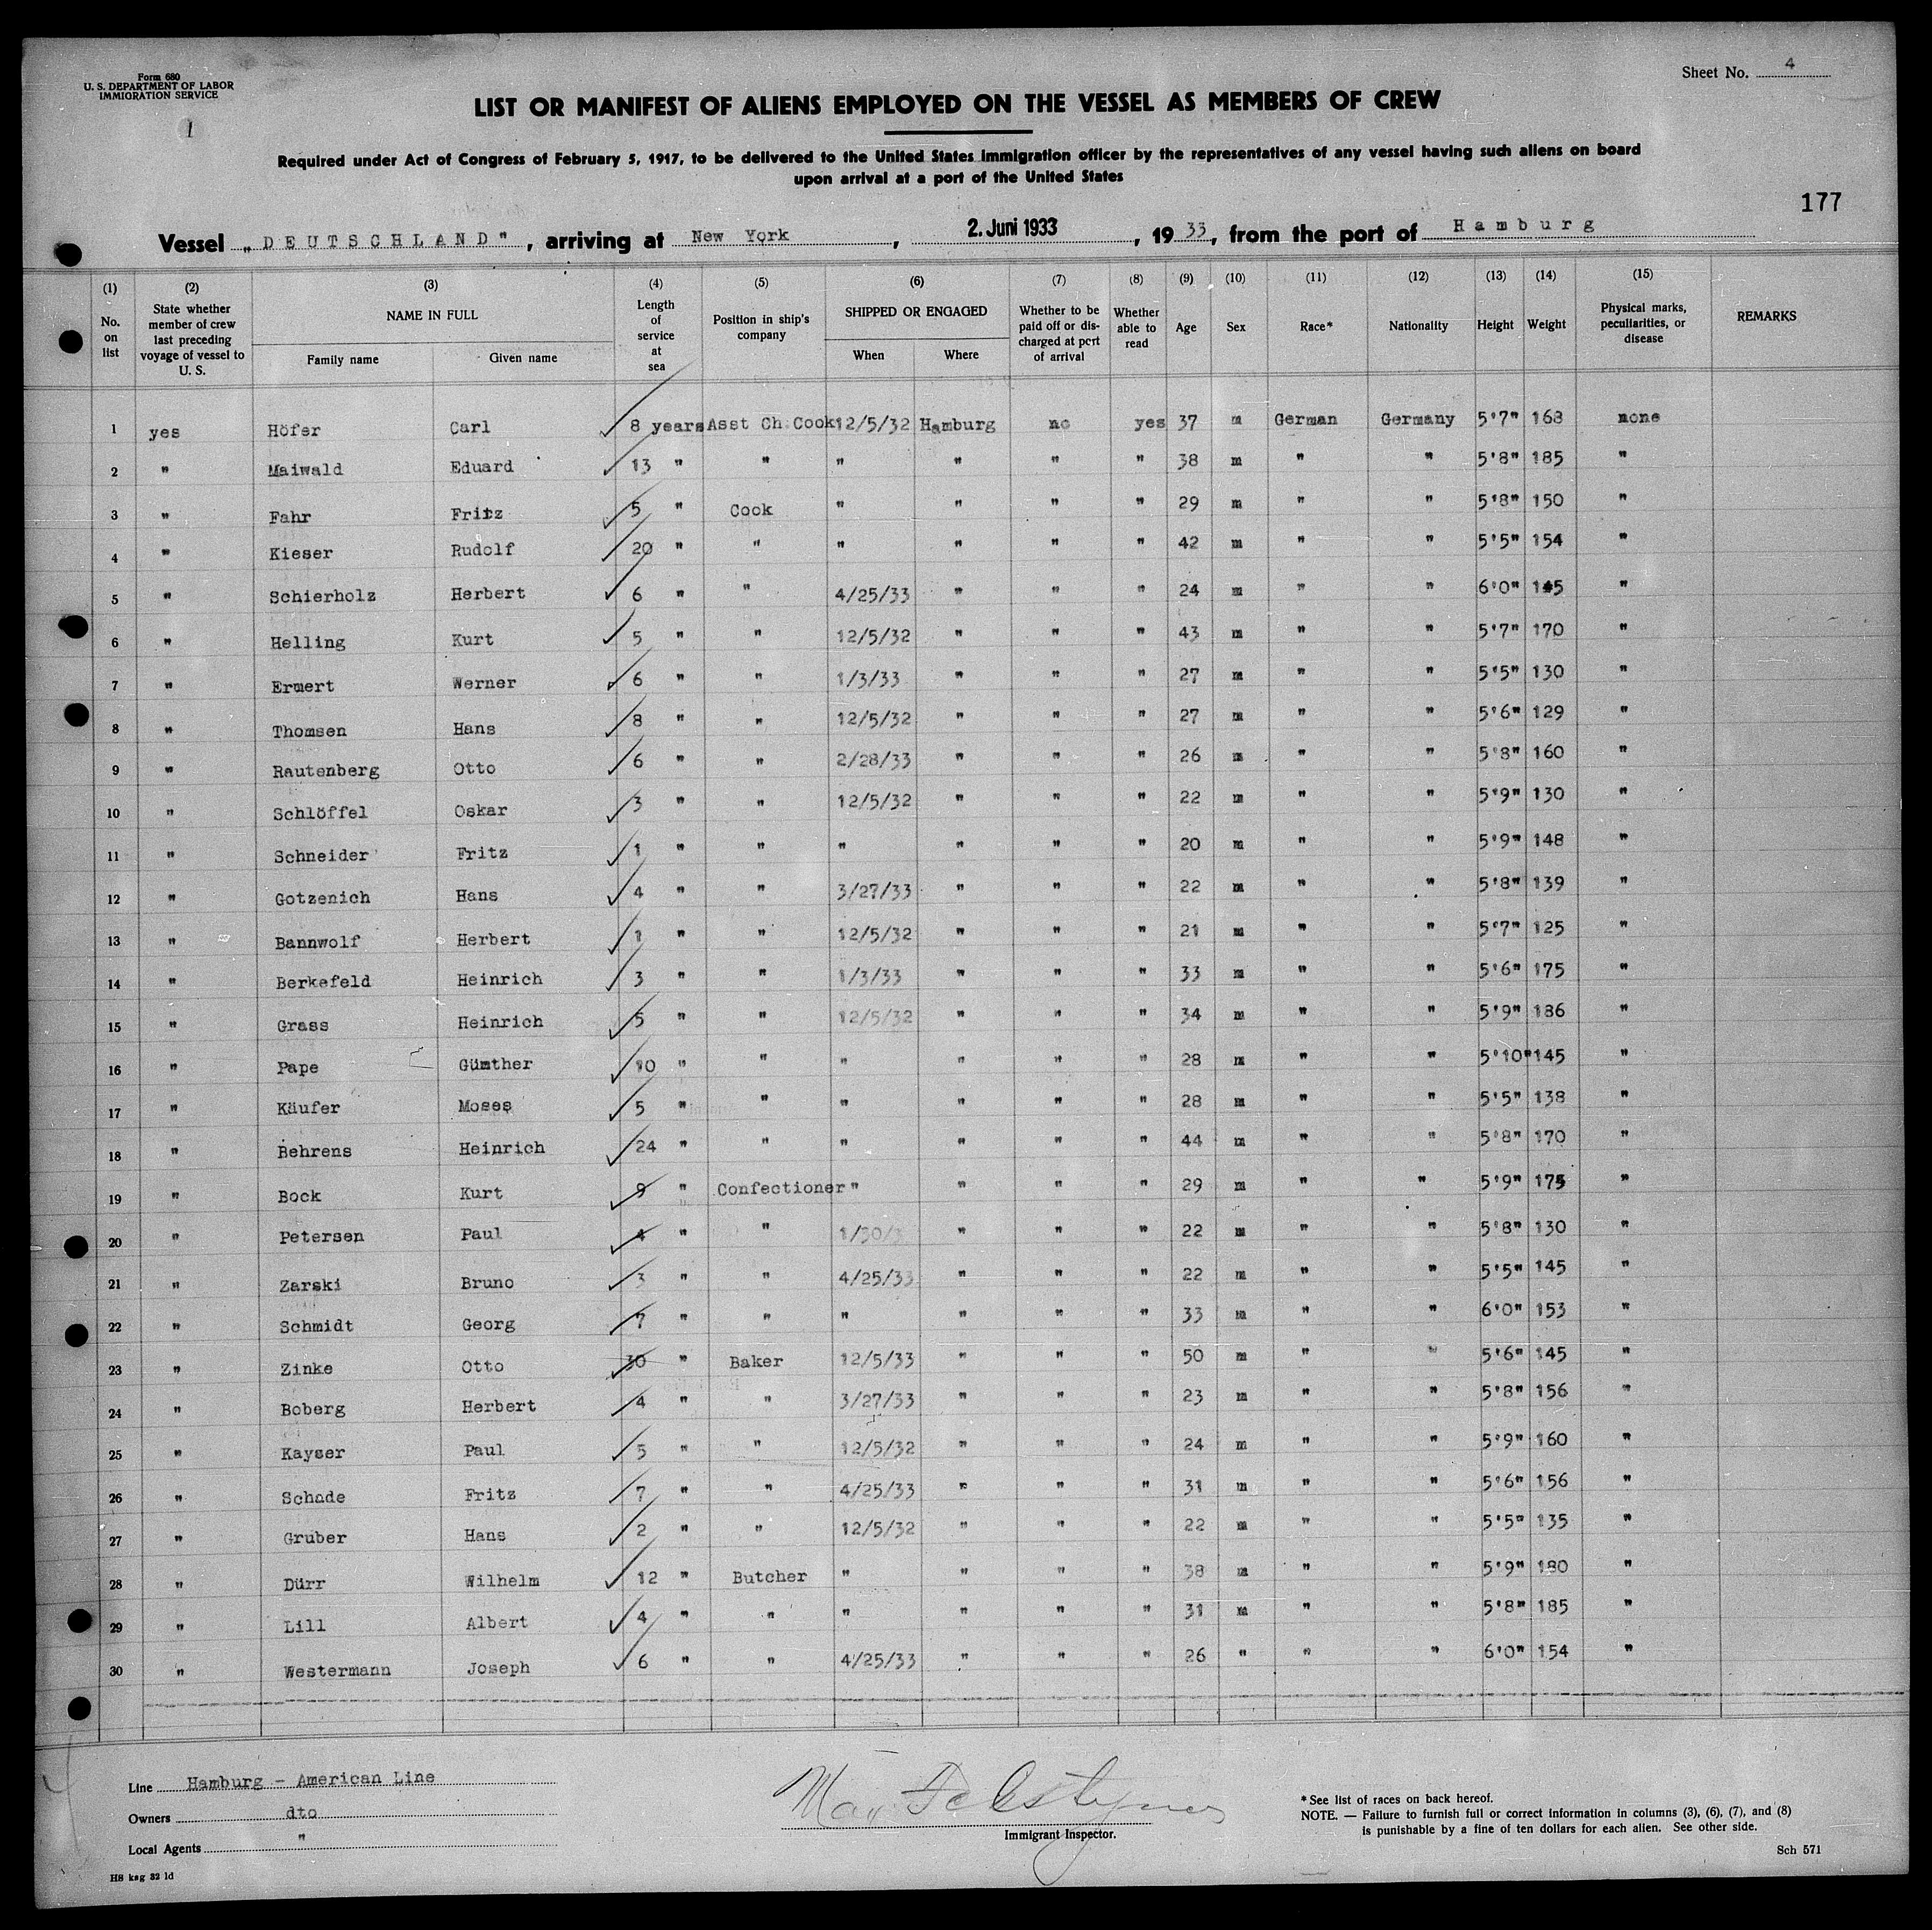 Form 680
U. S. DEPARTMENT OF LABOR
IMMIGRATION SERVICE
1
Sheet No. 4
LIST OR MANIFEST OF ALIENS EMPLOYED ON THE VESSEL AS MEMBERS OF CREW
Required under Act of Congress of February 5, 1917, to be delivered to the United States immigration officer by the representatives of any vessel having such aliens on board
upon arrival at a port of the United States
177
Vessel „DEUTSCHLAND", arriving at New York, 2. Juni 1933, 1933, from the port of Hamburg
(1) (2) (3) (4) (5) (6) (7) (8) (9) (10) (11) (12) (13) (14) (15)
No. on list | State whether member of crew last preceding voyage of vessel to U. S. | NAME IN FULL Family name Given name | Length of service at sea | Position in ship's company | SHIPPED OR ENGAGED When Where | Whether to be paid off or discharged at port of arrival | Whether able to read | Age | Sex | Race* | Nationality | Height | Weight | Physical marks, peculiarities, or disease | REMARKS
1 yes Höfer Carl 8 years Asst Ch Cook 12/5/32 Hamburg no yes 37 m German Germany 5'7" 168 none
2 " Maiwald Eduard 13 " " " " " " 38 m " " 5'8" 185 "
3 " Fahr Fritz 5 " Cook " " " " 29 m " " 5'8" 150 "
4 " Kieser Rudolf 20 " " " " " " 42 m " " 5'5" 154 "
5 " Schierholz Herbert 6 " " 4/25/33 " " " 24 m " " 6'0" 145 "
6 " Helling Kurt 5 " " 12/5/32 " " " 43 m " " 5'7" 170 "
7 " Ermert Werner 6 " " 1/3/33 " " " 27 m " " 5'5" 130 "
8 " Thomsen Hans 8 " " 12/5/32 " " " 27 m " " 5'6" 129 "
9 " Rautenberg Otto 6 " " 2/28/33 " " " 26 m " " 5'8" 160 "
10 " Schlöffel Oskar 3 " " 12/5/32 " " " 22 m " " 5'9" 130 "
11 " Schneider Fritz 1 " " " " " " 20 m " " 5'9" 148 "
12 " Gotzenich Hans 4 " " 3/27/33 " " " 22 m " " 5'8" 139 "
13 " Bannwolf Herbert 1 " " 12/5/32 " " " 21 m " " 5'7" 125 "
14 " Berkefeld Heinrich 3 " " 1/3/33 " " " 33 m " " 5'6" 175 "
15 " Grass Heinrich 5 " " 12/5/32 " " " 34 m " " 5'9" 186 "
16 " Pape Günther 10 " " " " " " 28 m " " 5'10" 145 "
17 " Käufer Moses 5 " " " " " " 28 m " " 5'5" 138 "
18 " Behrens Heinrich 24 " " " " " " 44 m " " 5'8" 170 "
19 " Bock Kurt 9 " Confectioner " " " " 29 m " " 5'9" 175 "
20 " Petersen Paul 4 " " " " " 22 m " " 5'8" 130 "
21 " Zarski Bruno 3 " " 4/25/33 " " " 22 m " " 5'5" 145 "
22 " Schmidt Georg 7 " " " " " " 33 m " " 6'0" 153 "
23 " Zinke Otto 30 " Baker 12/5/33 " " " 50 m " " 5'6" 145 "
24 " Boberg Herbert 4 " " 3/27/33 " " " 23 m " " 5'8" 156 "
25 " Kayser Paul 5 " " 12/5/32 " " " 24 m " " 5'9" 160 "
26 " Schade Fritz 7 " " 4/25/33 " " " 31 m " " 5'6" 156 "
27 " Gruber Hans 2 " " 12/5/32 " " " 22 m " " 5'5" 135 "
28 " Dürr Wilhelm 12 " Butcher " " " " 38 m " " 5'9" 180 "
29 " Lill Albert 4 " " " " " " 31 m " " 5'8" 185 "
30 " Westermann Joseph 6 " " 4/25/33 " " " 26 " " " 6'0" 154 "
Line Hamburg - American Line
Owners dto
Local Agents "
HS kag 32 1d
Immigrant Inspector.
* See list of races on back hereof.
NOTE. — Failure to furnish full or correct information in columns (3), (6), (7), and (8)
is punishable by a fine of ten dollars for each alien. See other side.
Sch 571